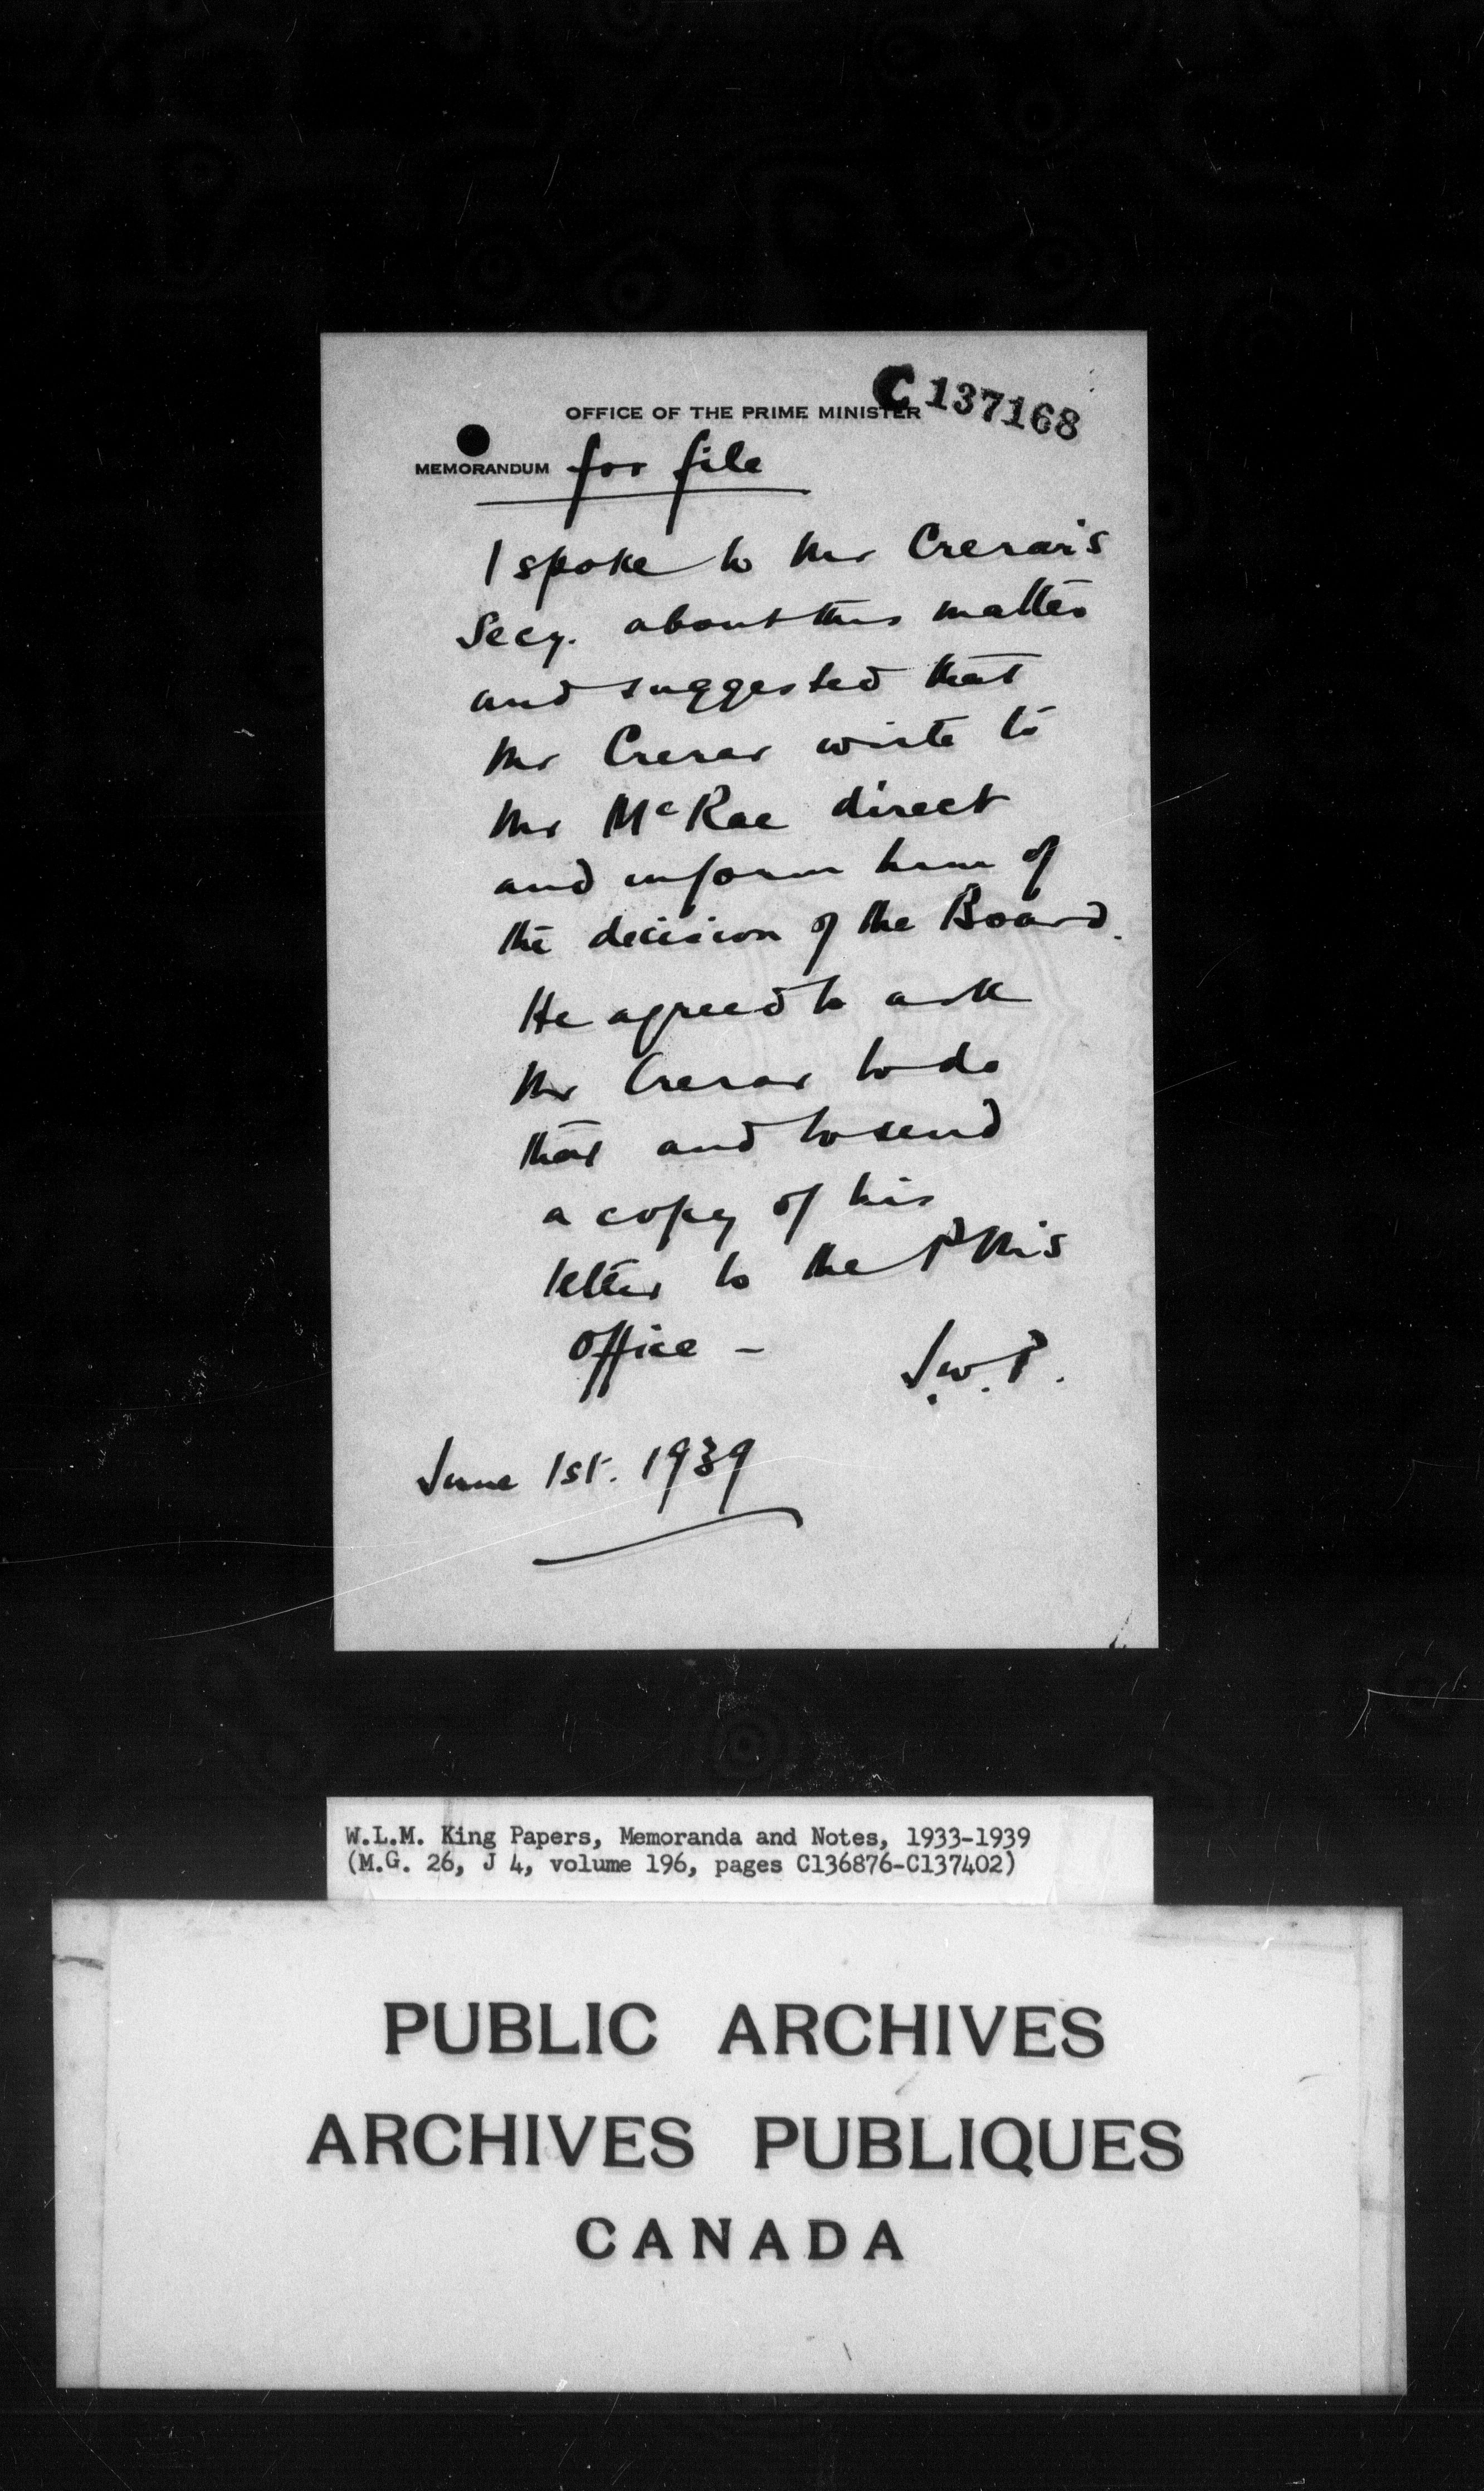 C 137168
OFFICE OF THE PRIME MINISTER
MEMORANDUM for file
I spoke to Mr Crerar's
Secy. about this matter
and suggested that
Mr Crerar write to
Mr McRae direct
and inform him of
the decision of the Board.
He agreed to ask
Mr Crerar to do
that and to send
a copy of his
letter to the PM's
Office -
J.W.P.
June 1st. 1939
W.L.M. King Papers, Memoranda and Notes, 1933-1939
(M.G. 26, J 4, volume 196, pages C136876-C137402)
PUBLIC ARCHIVES
ARCHIVES PUBLIQUES
CANADA